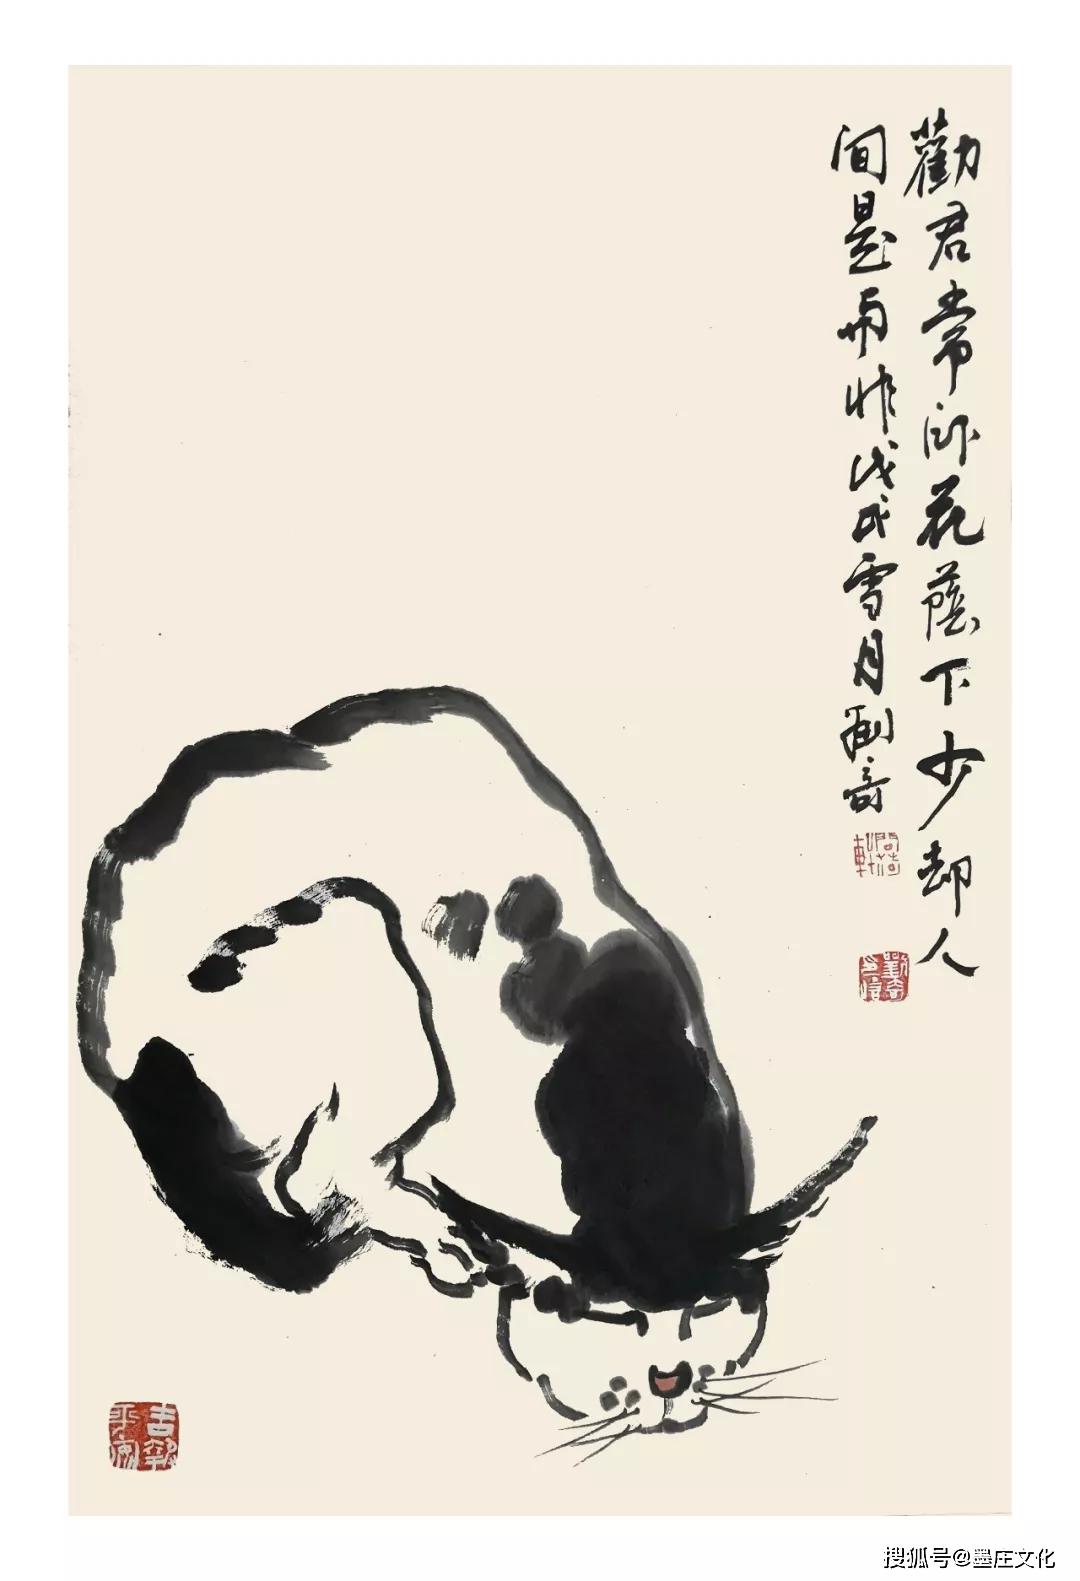 勸君常卧花蔭下少却人
间是與非戊戌雪月勤奇
搜狐号@墨庄文化